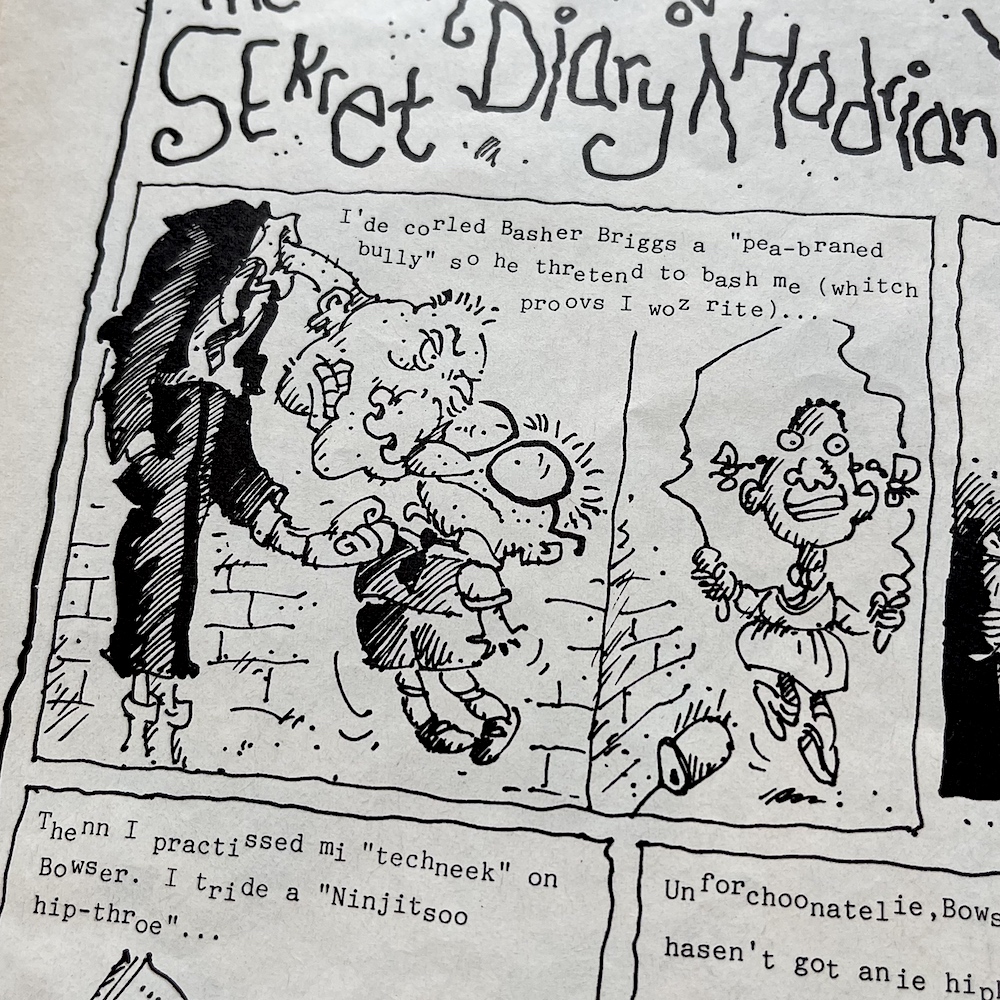 The
SEKret Diary
Hadrian
I'de corled Basher Briggs a "pea-braned
bully" so he thretend to bash me (whitch
proovs I woz rite)...
Thenn I practissed mi "techneek" on
Bowser. I tride a "Ninjitsoo
hip-throe"...
Unforchoonatelie, Bows
hasen't got anie hip